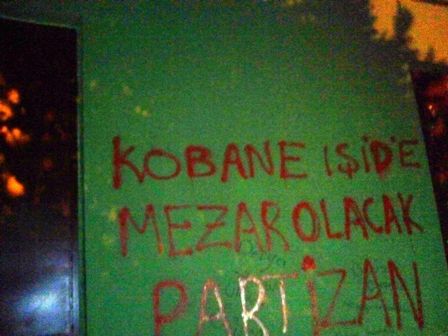 KOBANE IŞİD'E
MEZAR OLACAK
PARTİZAN